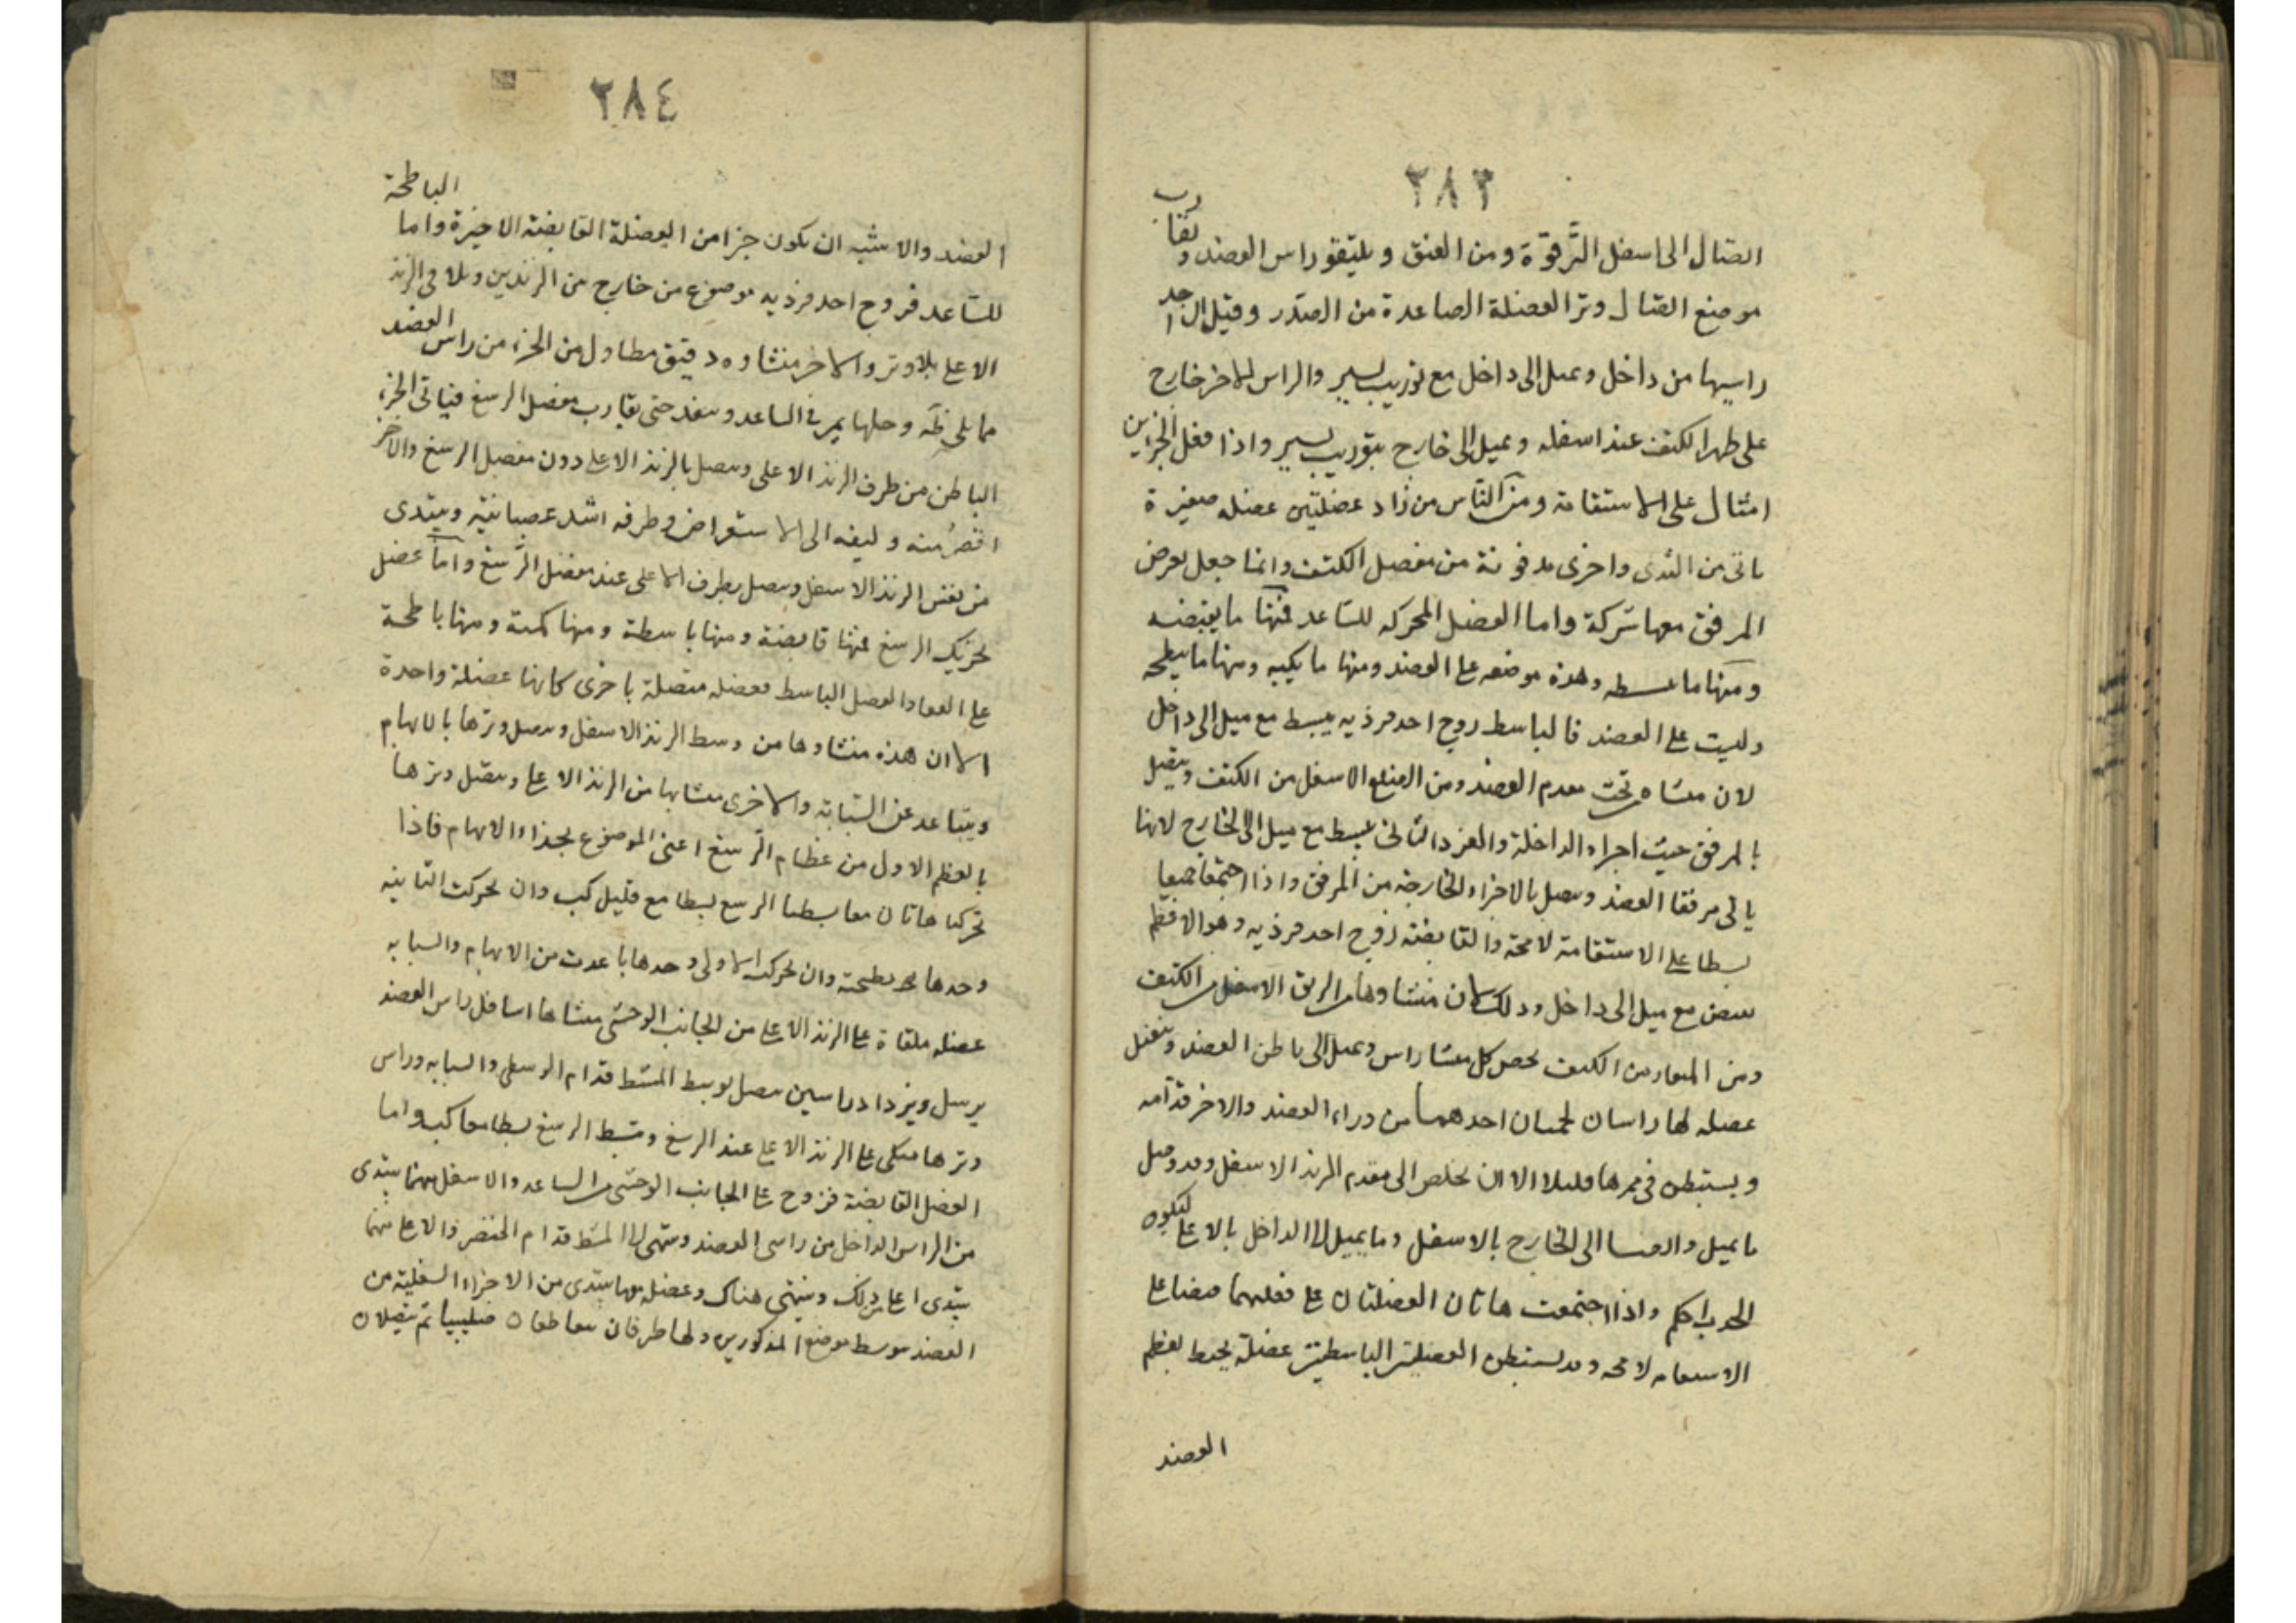 ٢٨٣
اتصال الى اسفل التَّرقوّة ومن العنق ويلتقو راس العضد ويقارب
موضع اتصال وتر العضلة الصاعدة من الصّدر وقيل ان احد
راسيها من داخل ويميل الى داخل مع توريب يسير والراس الاخر خارج
على ظهر الكتف عند اسفله ويميل الى خارج بتوريب يسير واذا فعل الجزاين
امتال على الاستقامة ومن النّاس من زاد عضلتين عضلة صغيرة
ياتى من الثدى واخرى مدفونة من مفصل الكتف وانما جعل بعرض
المرفق معها شركة واما العضل المحركه للسّاعد فمنها ما يقبضه
ومنها ما يبسطه وهذه موضعه على العضد ومنها ما يكبه ومنها ما يبطحه
وليست على العضد فالباسط زوج احد فرذيه يبسط مع ميل الى داخل
لان منشاه من تحت مقدم العضد ومن الضلع الاسفل من الكتف ويتصل
بالمرفق حيث اجزاء الداخلة والفرد الثانى يبسط مع ميل الى الخارج لانها
ياتى من فقا العضد ويتصل بالاجزاء الخارجة من المرفق واذا اجتمعا جميعا
بسطا على الاستقامة لامحة والقابضة زوج احد فرذيه وهو الاعظم
يقبض مع ميل الى داخل وذلك لان منشاوها من الزيق الاسفل من الكتف
ومن المنقار من الكتف يخص كل منشا راس ويميل الى باطن العضد ويتصل
عضله لها راسان لحميان احدهما من وراء العضد والاخر قدّامه
ويستبطن فى ممرها قليلا الا ان يخلص الى مقدم الزند الاسفل وقد وصل
ما يميل الى الخارج بالاسفل وما يميل الى الداخل بالاعلى ليكون
الجذب احكم واذا اجتمعت هاتان العضلتان على فعلهما قبضا على
الاستقامه لامحه وقد يستبطن العضلتين الباسطتين عضلة يحيط بعظم
العضد
٢٨٤
العضد والاشبه ان يكون جزا من العضلة القابضة الاخيرة واما الباطحة
للسّاعد فزوج احد فرذيه موضوع من خارج من الزندين ويلاقى الزند
الاعلى بلا وتر والاخر منشاوه دقيق مطاول من الجزء من راس العضد
مما يلى ظهره وجلها يمر فى الساعد وينفذ حتى يقارب مفصل الرسغ فياتى الجزء
الباطن من طرف الزند الاعلى ويتصل بالزند الاعلى دون مفصل الرسغ والاخر
اقصر منه وليفه الى الاستعراض وطرفه اشد عصبانيّه ويبتدى
من نفس الزند الاسفل ويتصل بطرف الاعلى عند مفصل الرّسغ وامّا عضل
تحريك الرسغ فمنها قابضة ومنها باسطة ومنها كمبة ومنها باطحة
على القفا والعضل الباسط فعضله متصلة باخرى كانها عضلة واحدة
الا ان هذه منشاوها من وسط الزند الاسفل ويتصل وترها بالابهام
ويتباعد عن السّبابة والاخرى منشاها من الزند الاعلى ويتصل وترها
بالعظم الاول من عظام الرّسغ اعنى الموضوع بحذاء الابهام فاذا
تحركتا هاتان معا بسطتا الرسغ بسطا مع قليل كب وان تحركت الثانيه
وحدها بطحته وان تحركت الاولى وحدها باعدت من الابهام والسبابه
عضله ملقاة على الزند الاعلى من الجانب الوحشى منشاها اسافل راس العضد
يرسل وترا ذا راسين يتصل بوسط المشط قدام الوسطى والسبابه وراس
وترها متكى على الزند الاعلى عند الرسغ ويبسط الرسغ بسطا معا كب واما
العضل القابضة فزوج على الجانب الوحشى من الساعد والاسفل منهما يبتدى
من الراس الداخل من راسى العضد وينتهى الى المشط قدام الخنصر والاعلى منهما
يبتدى اعلى من ذلك وينتهى هناك وعضله معها يبتدى من الاجزاء السفلية من
العضد يتوسط موضع المذكورين ولها طرفان يتقاطعان صليبيا ثم يتصلان